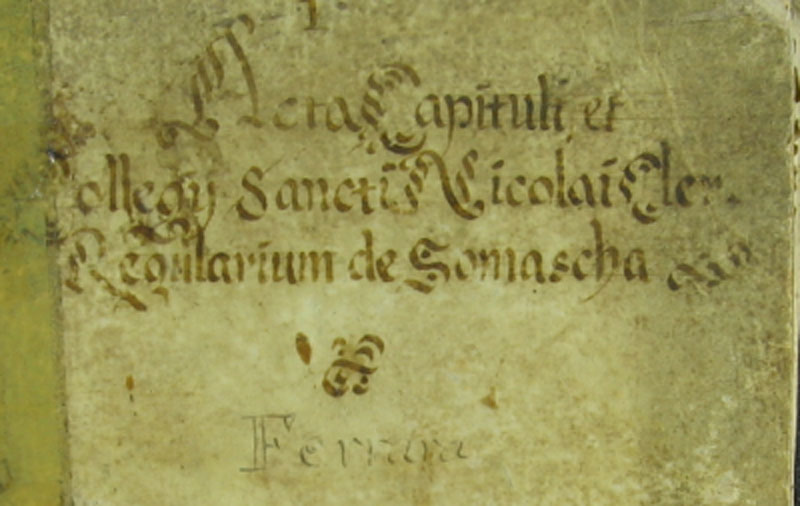 Acta Capituli et
Collegij Sancti Nicolai Cler.
Regularium de Somascha
Ferrara